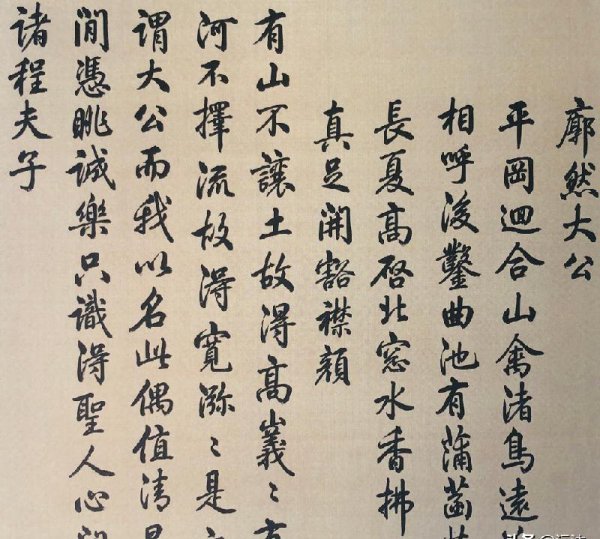 廓然大公
平岡迴合山禽渚鳥遠
相呼浚鑿曲池有蒲菡
長夏高啓北窓水香拂
真足開豁襟顏
有山不讓土故得高嶬〻有
河不擇流故得寬瀰〻是
謂大公而我以名此偶值清
閒憑眺誠樂只識得聖人心
諸程夫子